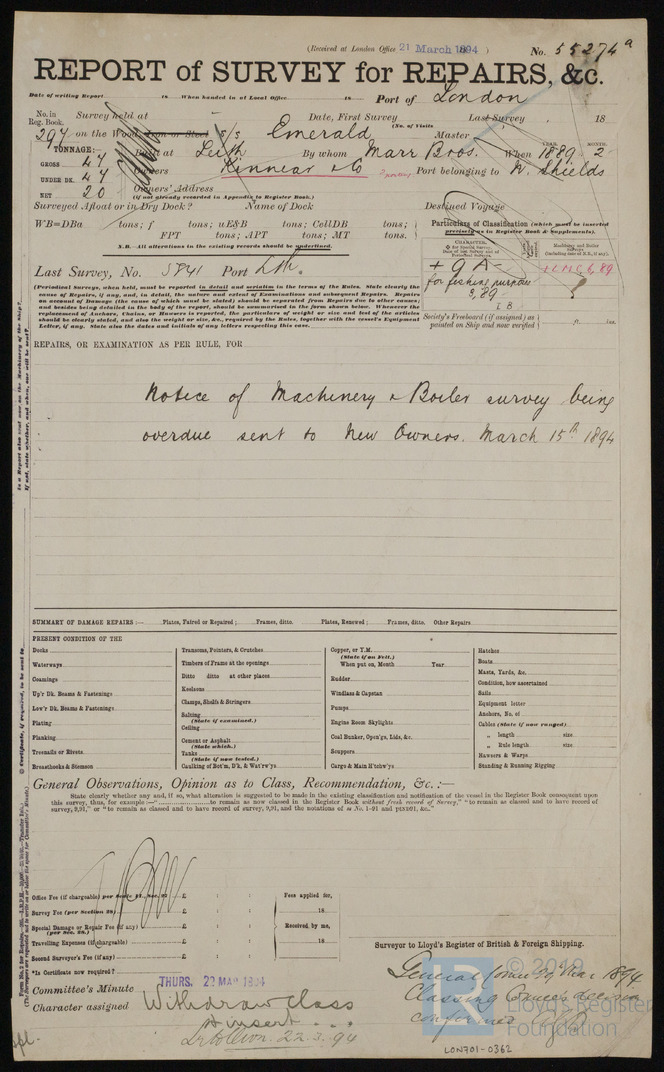 (Received at London Office 21 March 1894)
No. 55274a
REPORT of SURVEY for REPAIRS, &c.
Date of writing Report 18 When handed in at Local Office 18 Port of London
No. in Reg. Book. Survey held at Date, First Survey Last Survey 18
(No. of Visits
297 on the Wood, Iron or Steel S/S Emerald Master
TONNAGE: Built at Leith By whom Marr Bros. When 1889 2
YEAR. MONTH.
GROSS 47 Owners Kinnear & Co Port belonging to N. Shields
UNDER DK. 47 Owners' Address
NET 20 (if not already recorded in Appendix to Register Book.)
Surveyed Afloat or in Dry Dock? Name of Dock Destined Voyage
WB=DBa tons; f tons; uE&B tons; CellDB tons;
FPT tons; APT tons; MT tons.
N.B.—All alterations in the existing records should be underlined.
Particulars of Classification (which must be inserted precisely as in Register Book & Supplements).
Last Survey, No. 5841 Port Lth.
+ 9 A-
for fishing purposes
3,89
L B
+LMC 6,89
Society's Freeboard (if assigned) as painted on Ship and now verified ft. ins.
(Periodical Surveys, when held, must be reported in detail and seriatim in the terms of the Rules. State clearly the
cause of Repairs, if any, and, in detail, the nature and extent of Examinations and subsequent Repairs. Repairs
on account of Damage (the cause of which must be stated) should be separated from Repairs due to other causes;
and besides being detailed in the body of the report, should be summarised in the form shown below. Whenever the
replacement of Anchors, Chains, or Hawsers is reported, the particulars of weight or size and test of the articles
should be clearly stated, and also the weight or size, &c., required by the Rules, together with the vessel's Equipment
Letter, if any. State also the dates and initials of any letters respecting this case.
REPAIRS, OR EXAMINATION AS PER RULE, FOR
Notice of Machinery & Boiler survey being
overdue sent to New Owners. March 15th 1894
SUMMARY OF DAMAGE REPAIRS:— Plates, Faired or Repaired; Frames, ditto. Plates, Renewed; Frames, ditto. Other Repairs
PRESENT CONDITION OF THE
Decks
Waterways
Coamings
Up'r Dk. Beams & Fastenings
Low'r Dk. Beams & Fastenings
Plating
Planking
Treenails or Rivets
Breasthooks & Stemson
Transoms, Pointers, & Crutches
Timbers of Frame at the openings
Ditto ditto at other places
Keelsons
Clamps, Shelfs & Stringers
Salting
(State if examined.)
Ceiling
Cement or Asphalt
(State which.)
Tanks
(State if now tested.)
Caulking of Bot'm, D'k, & Wat'rw'ys
Copper, or Y.M.
(State if on Felt.)
When put on, Month Year
Rudder
Windlass & Capstan
Pumps
Engine Room Skylights
Coal Bunker, Open'gs, Lids, &c.
Scuppers
Cargo & Main H'tchw'ys
Hatches
Boats
Masts, Yards, &c.
Condition, how ascertained
Sails
Equipment letter
Anchors, No. of
Cables (State if now ranged)
„ length size
„ Rule length size
Hawsers & Warps
Standing & Running Rigging
General Observations, Opinion as to Class, Recommendation, &c.:—
State clearly whether any, and if so, what alteration is suggested to be made in the existing classification and notification of the vessel in the Register Book consequent upon
this survey, thus, for example:—"..........to remain as now classed in the Register Book without fresh record of Survey," "to remain as classed and to have record of
survey, 9,91," or "to remain as classed and to have record of survey, 9,91, and the notations of
Office Fee (if chargeable) £ : : Fees applied for,
Survey Fee (per Section 28) £ : : 18
Special Damage or Repair Fee (if any) £ : : Received by me,
(per Sec. 28.)
Travelling Expenses (if chargeable) £ : : 18
Second Surveyor's Fee (if any) £ : :
Surveyor to Lloyd's Register of British & Foreign Shipping.
*Is Certificate now required?
Committee's Minute THURS. 22 MAR 1894
Character assigned Withdraw Class
& insert ...
22.3.94
General Comee 29 Mar 1894
Classing Comee's decision
confirmed
© 2019
Lloyd's Register
Foundation
LON701-0362